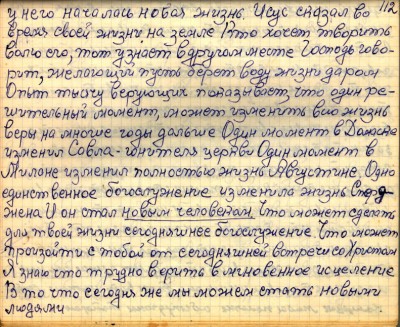 у него началась новая жизнь. Исус сказал во 112
время своей жизни на земле кто хочет творить
волю его, тот узнает в другом месте Господь гово-
рит, желающий пусть берет воду жизни даром
Опыт тысяч верующих показывает, что один ре-
шительный момент, может изменить всю жизнь
веры на многие годы дальше Один момент в Дамаске
изменил Савла-гонителя церкви Один момент в
Милане изменил полностью жизнь Августине. Одно
единственное богослужение изменила жизнь
жена И он стал новым человеком. Что может сделать
для твоей жизни сегодняшнее богослужение. Что может
произойти с тобой от сегодняшней встречи со Христом
Я знаю что трудно верить в мгновенное исцеление
В то что сегодня же мы можем стать новыми
людями